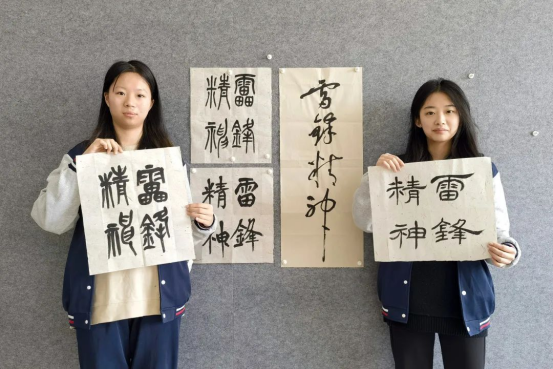 雷鋒
精神
雷鋒
精神
雷鋒
精神
雷鋒精神
雷鋒
精神